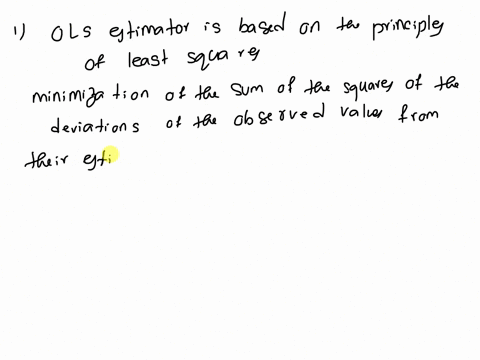 1) OLS estimator is based on the principles
of least squares
minimization of the sum of the squares of the
deviations of the observed values from
their esti